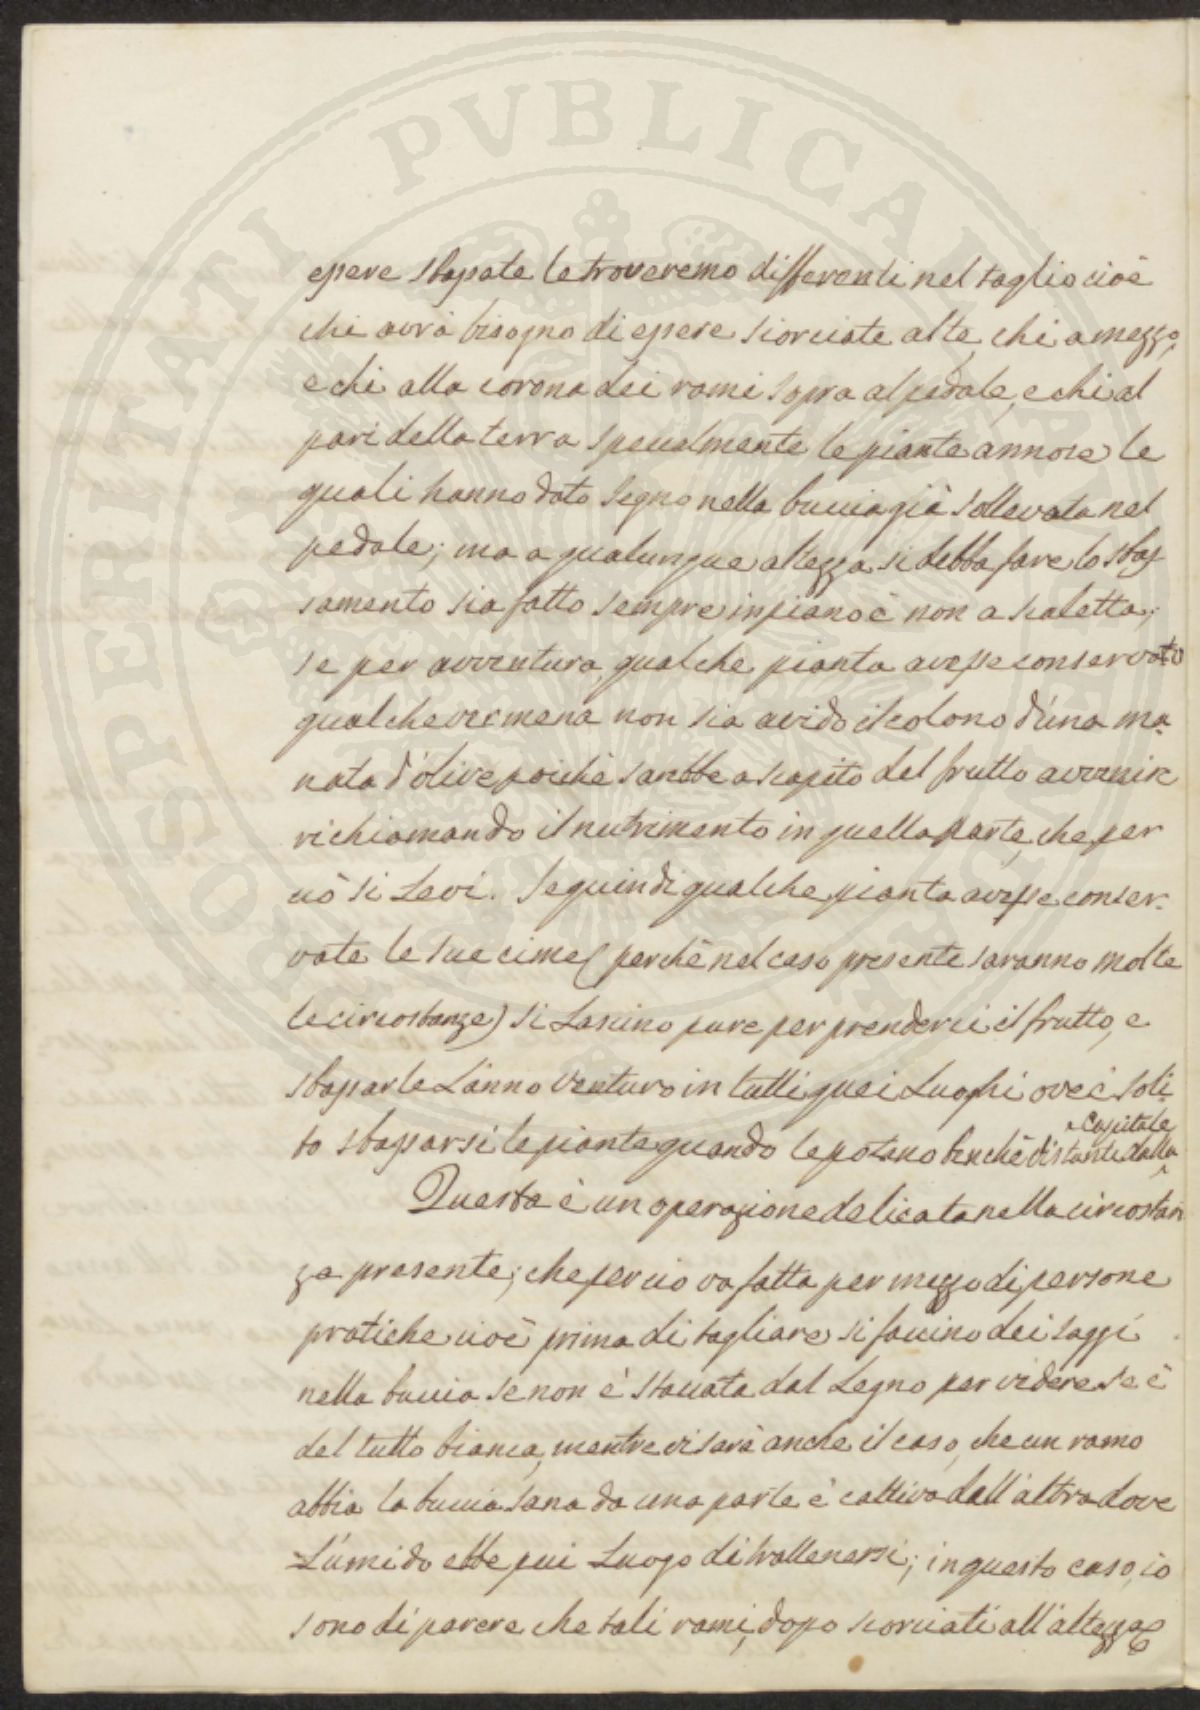 PROSPERITATI PVBLICAE AVGENDAE
essere sbassate le troveremo differenti nel taglio cioè
chi avrà bisogno di essere scorciate alte, chi a mezzo,
e chi alla corona dei rami sopra al pedale, e chi al
pari della terra specialmente le piante annose le
quali hanno dato segno nella buccia già sollevata nel
pedale; ma a qualunque altezza si debba fare lo sbas
samento sia fatto sempre in piano è non a scaletta;
se per avventura qualche pianta avesse conservato
qualche vermena non sia avido il colono d'una ma-
nata d'olive poichè sarebbe a scapito del frutto avvenire
richiamando il nutrimento in quella parte, che per
ciò si Levi. Se quindi qualche pianta avesse conser-
vate le sue cime (perchè nel caso presente saranno molte
le circostanze) si Lascino pure per prenderci il frutto, e
sbassarle L'anno venturo in tutti quei Luoghi ove è soli-
to sbassarsi le piante quando le potano benchè distanti dalla Capitale
Questa è un operazione delicata nella circostan
za presente; che perciò va fatta per mezzo di persone
pratiche cioè prima di tagliare si faccino dei saggi
nella buccia se non è staccata dal Legno per vedere se è
del tutto bianca, mentre vi sarà anche il caso, che un ramo
abbia la buccia sana da una parte è cattiva dall'altra dove
L'umido ebbe più Luogo di trattenersi; in questo caso, io
sono di parere che tali rami, dopo scorciati all'altezza